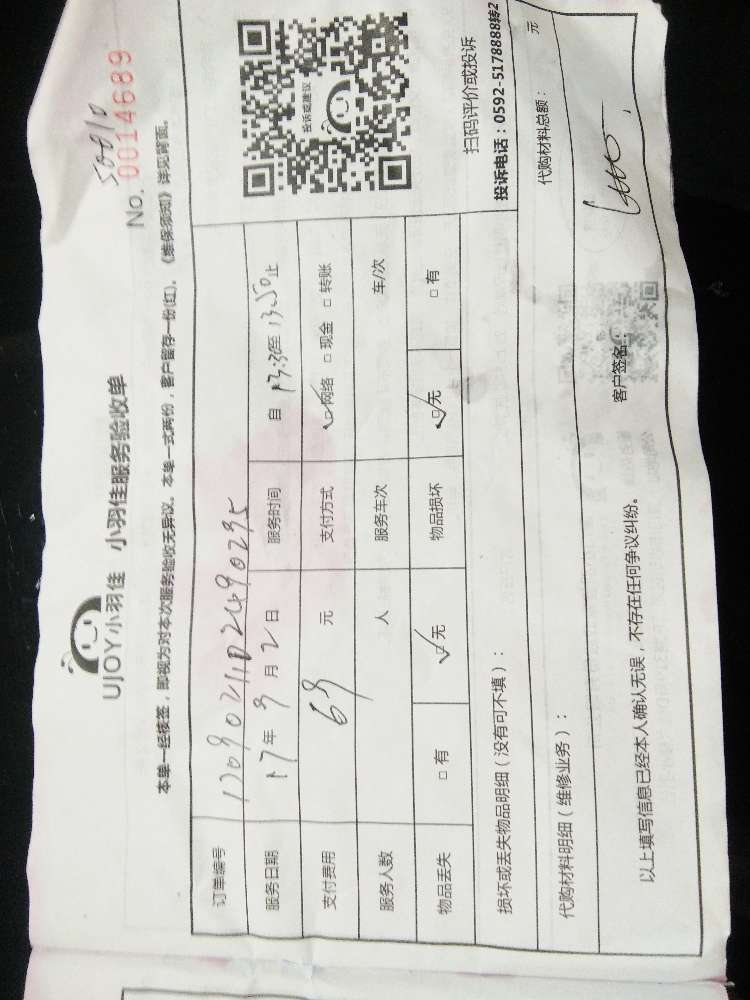 UJOY小羽佳 小羽佳服务验收单
50010
No. 0014689
本单一经核签，即视为对本次服务验收无异议。本单一式两份，客户留存一份(红)。《维保须知》详见背面。
订单编号 1709021102490295
服务日期 17年9月2日 服务时间 自13:30至13:50止
支付费用 69元 支付方式 ☑网络 □现金 □转账
服务人数 人 服务车次 车/次
物品丢失 □有 ☑无 物品损坏 ☑无 □有
投诉或建议
扫码评价或投诉
投诉电话：0592-5178888转2
损坏或丢失物品明细（没有可不填）：
代购材料明细（维修业务）： 代购材料总额： 元
以上填写信息已经本人确认无误，不存在任何争议纠纷。 客户签名：